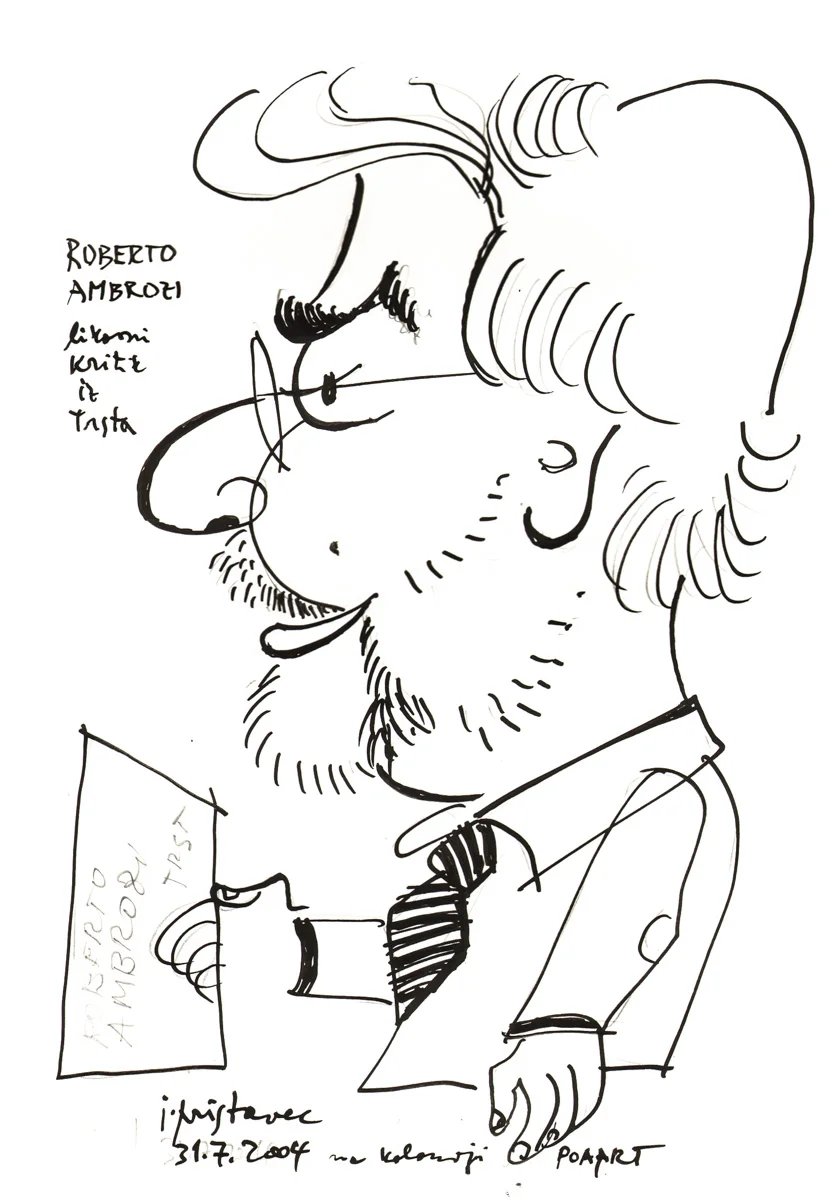 ROBERTO
AMBROZI
likovni
kritik
iz
Trsta
ROBERTO
AMBROŽI
TRST
j. pristavec
31.7.2004 na koloniji POAART